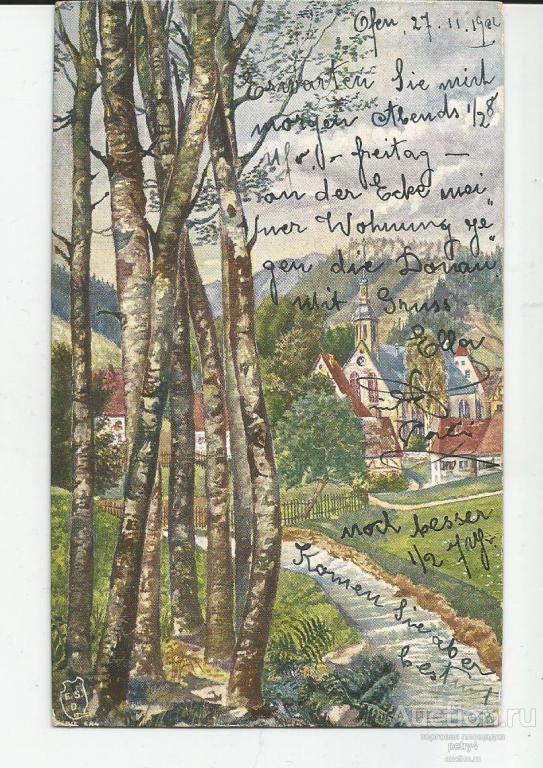 Ofen, 27. 11. 19
Erwarten Sie mich
morgen Abends 1/2 8
Uhr, - freitag -
an der Ecke mei„
ner Wohnung ge„
gen die Donau
Mit Gruss
Ella
noch besser
1/2 7 Uhr.
Komen Sie aber
bestimt
Auction.ru
торговая площадка
petry4
auction.ru